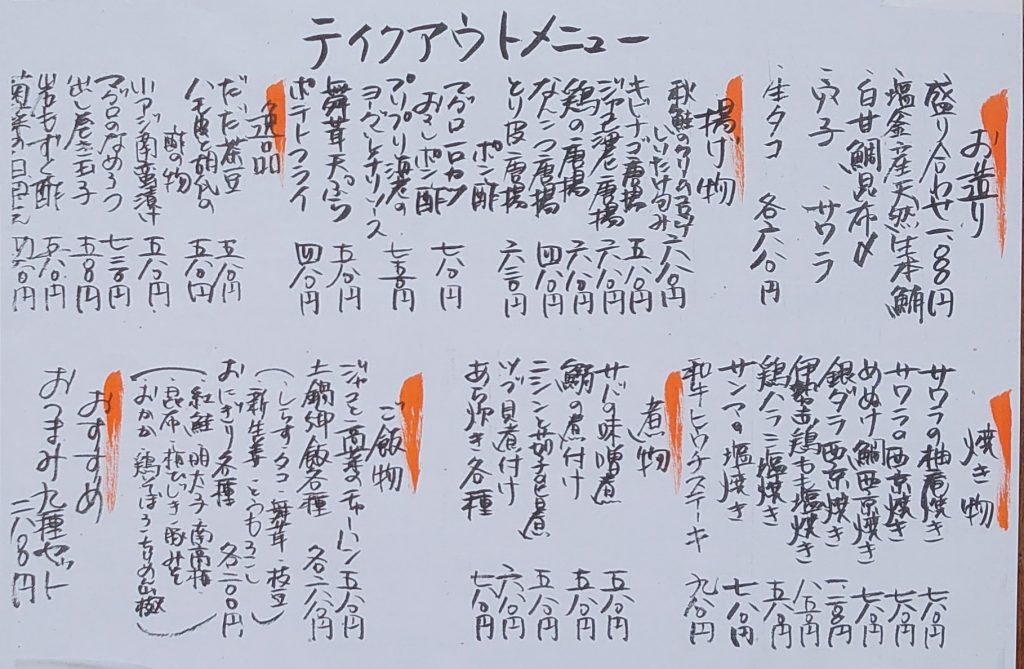 テイクアウトメニュー
お造り
盛り合わせ 一、八〇〇円
塩釜産天然生本鮪
白甘鯛昆布〆
穴子 サワラ
生タコ 各六八〇円
揚げ物
しいたけ包み 六八〇円
キビナゴ唐揚 五八〇円
ジャコ海老唐揚 六八〇円
鶏の唐揚 六八〇円
なんこつ唐揚 四八〇円
とり皮唐揚 六三〇円
ポン酢
マグロ一口カツ
おろしポン酢 七八〇円
プリプリ海老の
ヨーグルトチリソース 七三〇円
舞茸天ぷら 五八〇円
ポテトフライ 四八〇円
逸品
だだ茶豆 五八〇円
ハモ皮と胡瓜の
酢の物 五八〇円
小アジ南蛮漬け 五八〇円
マグロのなめろう 七三〇円
出し巻き玉子 五八〇円
岩もずく酢 五八〇円
焼き物
サワラの柚庵焼き 七八〇円
サワラの西京焼き 七八〇円
めぬけ鯛西京焼き 七八〇円
銀ダラ西京焼き
伊勢赤鶏もも塩焼き 八五〇円
鶏ハラミ塩焼き 五八〇円
サンマの塩焼き 七八〇円
和牛ヒウチステーキ 九八〇円
煮物
サバの味噌煮 五八〇円
鯛の煮付け 五八〇円
ニシンと茄子の煮 五八〇円
ツブ貝煮付け 六八〇円
あら炊き各種 七八〇円
ご飯物
ジャコと高菜のチャーハン 五八〇円
土鍋御飯各種
(しらす・タコ・舞茸・枝豆
新生姜・とうもろこし)
おにぎり各種 各二〇〇円
(紅鮭・明太子・南高梅
昆布・梅ひじき・豚みそ
おかか・鶏そぼろ・ちりめん山椒)
おすすめ
おつまみ九種セット